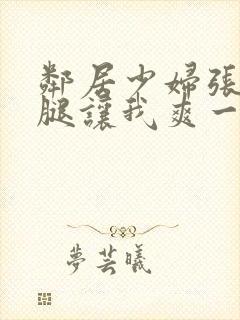 鄰居少婦張
腿讓我爽一
夢芸曦